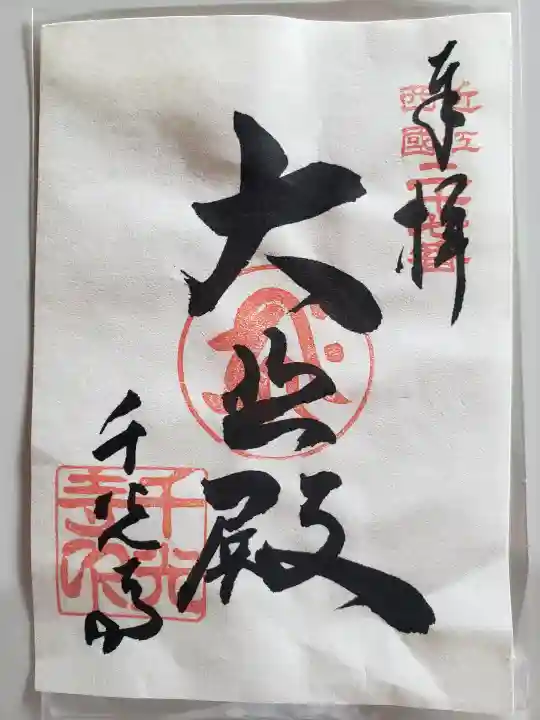 奉拝
近江
西國
二十七番
大悲殿
千光寺
千光
寺印